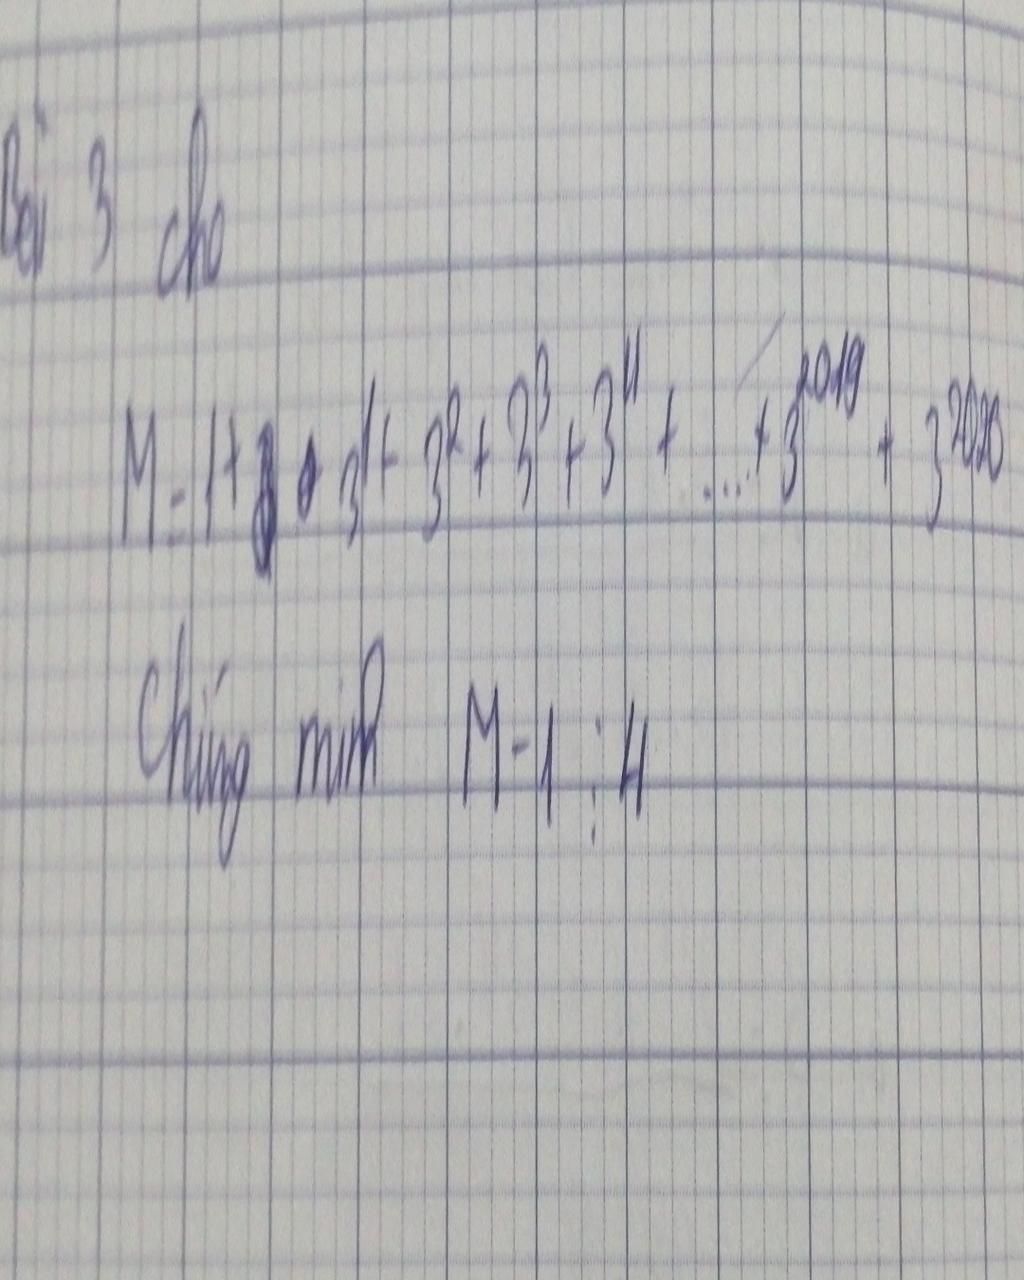 Bài 3 cho
M = 1 + 3¹ + 3² + 3³ + 3⁴ + ... + 3²⁰¹⁹ + 3²⁰²⁰
Chứng minh M - 1 ⋮ 4